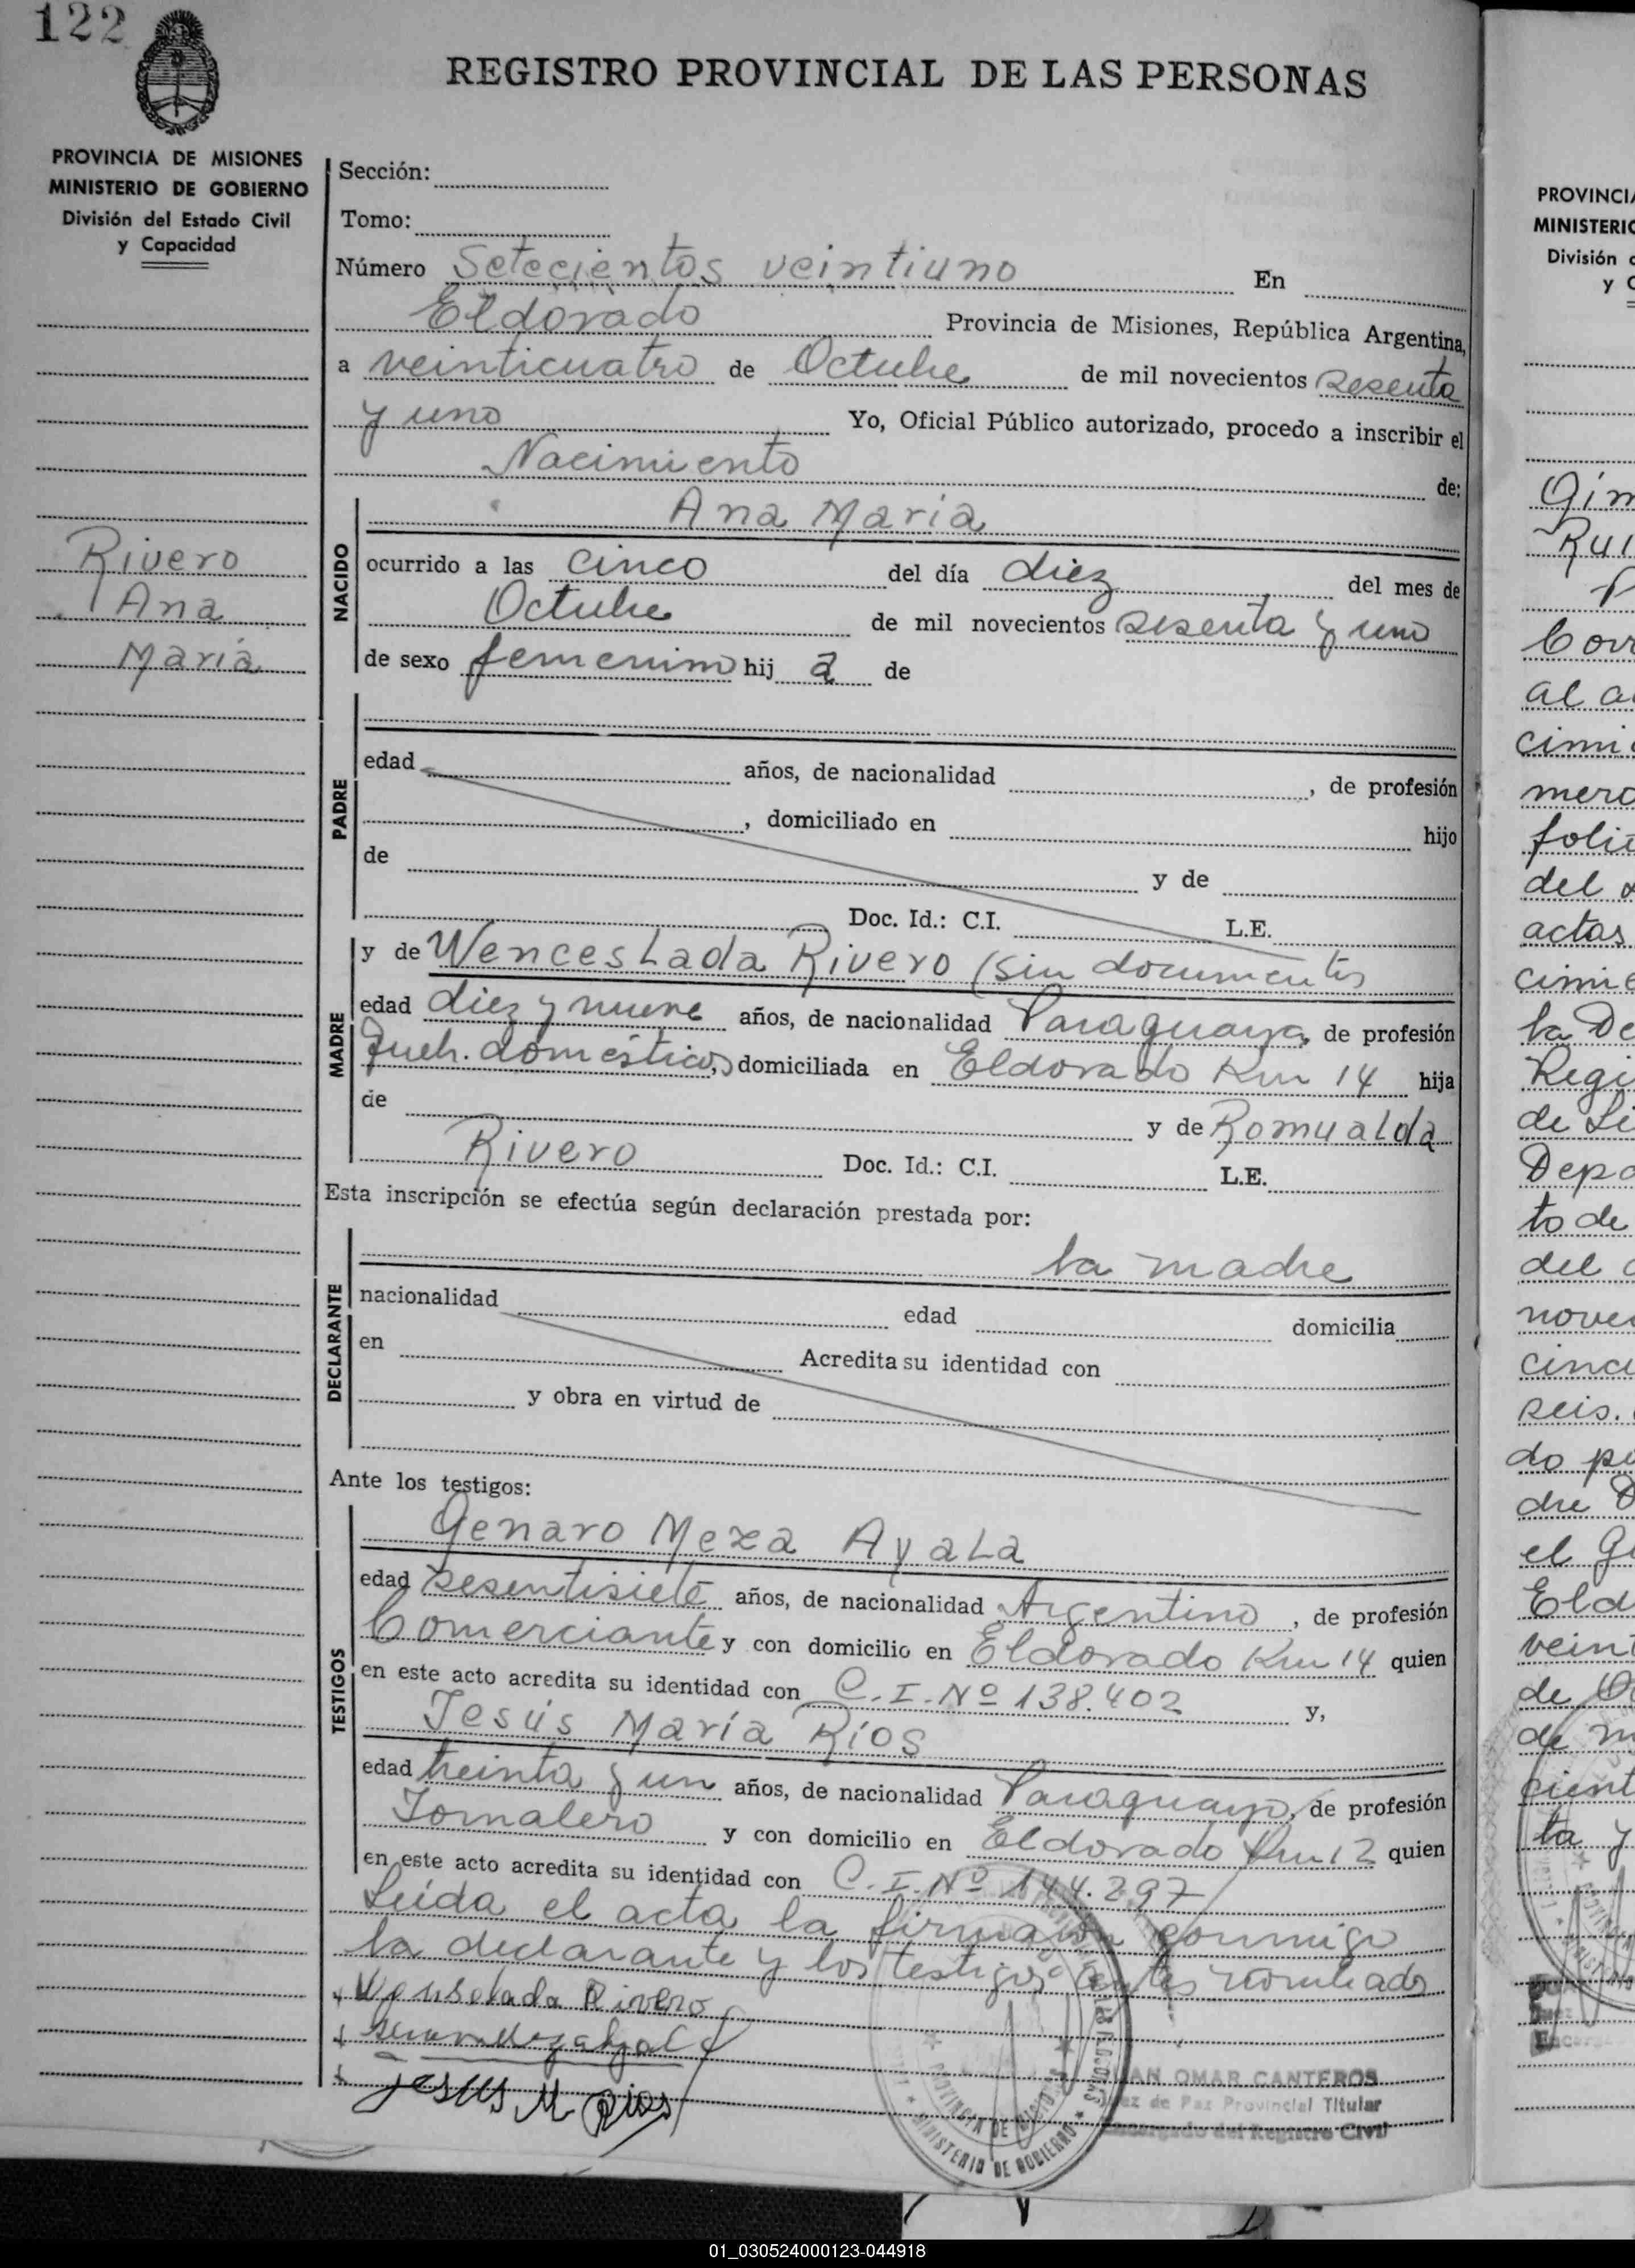 122
REGISTRO PROVINCIAL DE LAS PERSONAS
PROVINCIA DE MISIONES
MINISTERIO DE GOBIERNO
División del Estado Civil
y Capacidad
Rivero
Ana
María
Sección:
Tomo:
Número Setecientos veintiuno En
Eldorado Provincia de Misiones, República Argentina,
a veinticuatro de Octubre de mil novecientos sesenta
y uno Yo, Oficial Público autorizado, procedo a inscribir el
Nacimiento de:
NACIDO
Ana María
ocurrido a las cinco del día diez del mes de
Octubre de mil novecientos sesenta y uno
de sexo femenino hij a de
PADRE
edad años, de nacionalidad , de profesión
, domiciliado en hijo
de y de
Doc. Id.: C.I. L.E.
MADRE
y de Wenceslada Rivero (sin documentos
edad diez y nueve años, de nacionalidad Paraguaya, de profesión
Queh. domésticos, domiciliada en Eldorado Km 14 hija
de y de Romualda
Rivero Doc. Id.: C.I. L.E.
Esta inscripción se efectúa según declaración prestada por:
DECLARANTE
la madre
nacionalidad edad domicilia
en Acredita su identidad con
y obra en virtud de
Ante los testigos:
TESTIGOS
Genaro Meza Ayala
edad sesentisiete años, de nacionalidad Argentino, de profesión
Comerciante y con domicilio en Eldorado Km 14 quien
en este acto acredita su identidad con C.I. Nº 138.402 y,
Jesús María Ríos
edad treinta y un años, de nacionalidad Paraguayo, de profesión
Jornalero y con domicilio en Eldorado Km 12 quien
en este acto acredita su identidad con C.I. Nº 144.297
Leída el acta la firman conmigo
la declarante y los testigos antes nombrados
Rivero
Jesus M Rios
PROVINCIA DE
MINISTERIO DE GOBIERNO
OMAR CANTEROS
de Paz Provincial Titular
Encargado del Registro Civil
PROVINCIA
MINISTERIO
División
y
Gim
Rui
al
cimi
folio
del
actas
cimie
la De
Regi
de
Depa
to de
del
nove
cinc
seis.
do
dre
el
Eld
vein
de
de m
cient
ta y
01_030524000123-044918